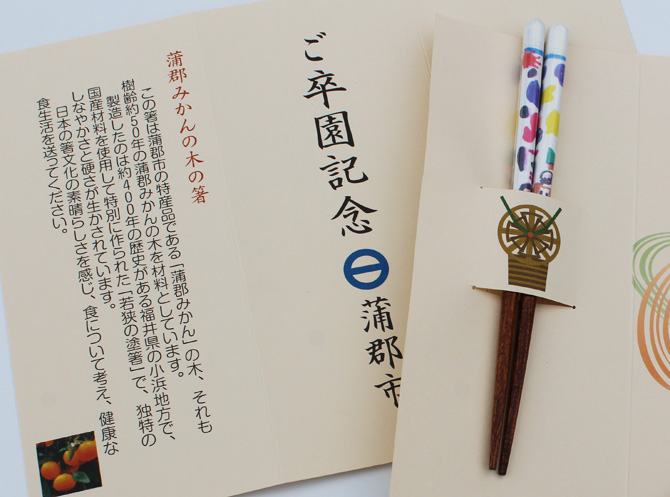 ご卒園記念
蒲郡市
蒲郡みかんの木の箸
この箸は蒲郡市の特産品である「蒲郡みかん」の木、それも
樹齢約50年の蒲郡みかんの木を材料としています。
製造したのは約400年の歴史がある福井県の小浜地方で、
国産材料を使用して特別に作られた「若狭の塗箸」で、独特の
しなやかさと硬さが生かされています。
日本の箸文化の素晴らしさを感じ、食について考え、健康な
食生活を送ってください。